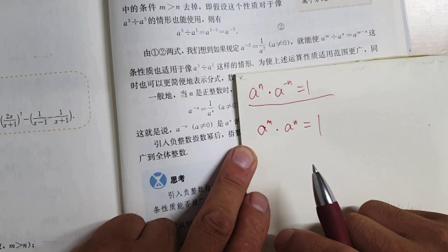 中的条件 m>n 去掉，即假设这个性质对于像
a³÷a⁵的情形也能使用，则有
a³÷a⁵=a³⁻⁵=a⁻². ②
由①②两式，我们想到如果规定 a⁻²=1/a² (a≠0)，就能使 aᵐ÷aⁿ=aᵐ⁻ⁿ这
条性质也适用于像 a³÷a⁵ 这样的情形
为使上述运算性质适用范围更广，同
时也可以更简便地表示分式，
一般地，当 n 是正整数时，
a⁻ⁿ=1/aⁿ (a≠
这就是说，a⁻ⁿ (a≠0) 是 aⁿ
引入负整数指数幂后，指
广到全体整数.
思考
引入负整数指
条性质能
aⁿ · a⁻ⁿ = 1
aᵐ · aⁿ = 1
(2x/(x+1))²−(1/(x−1)−1/(x+1)).
m>n)